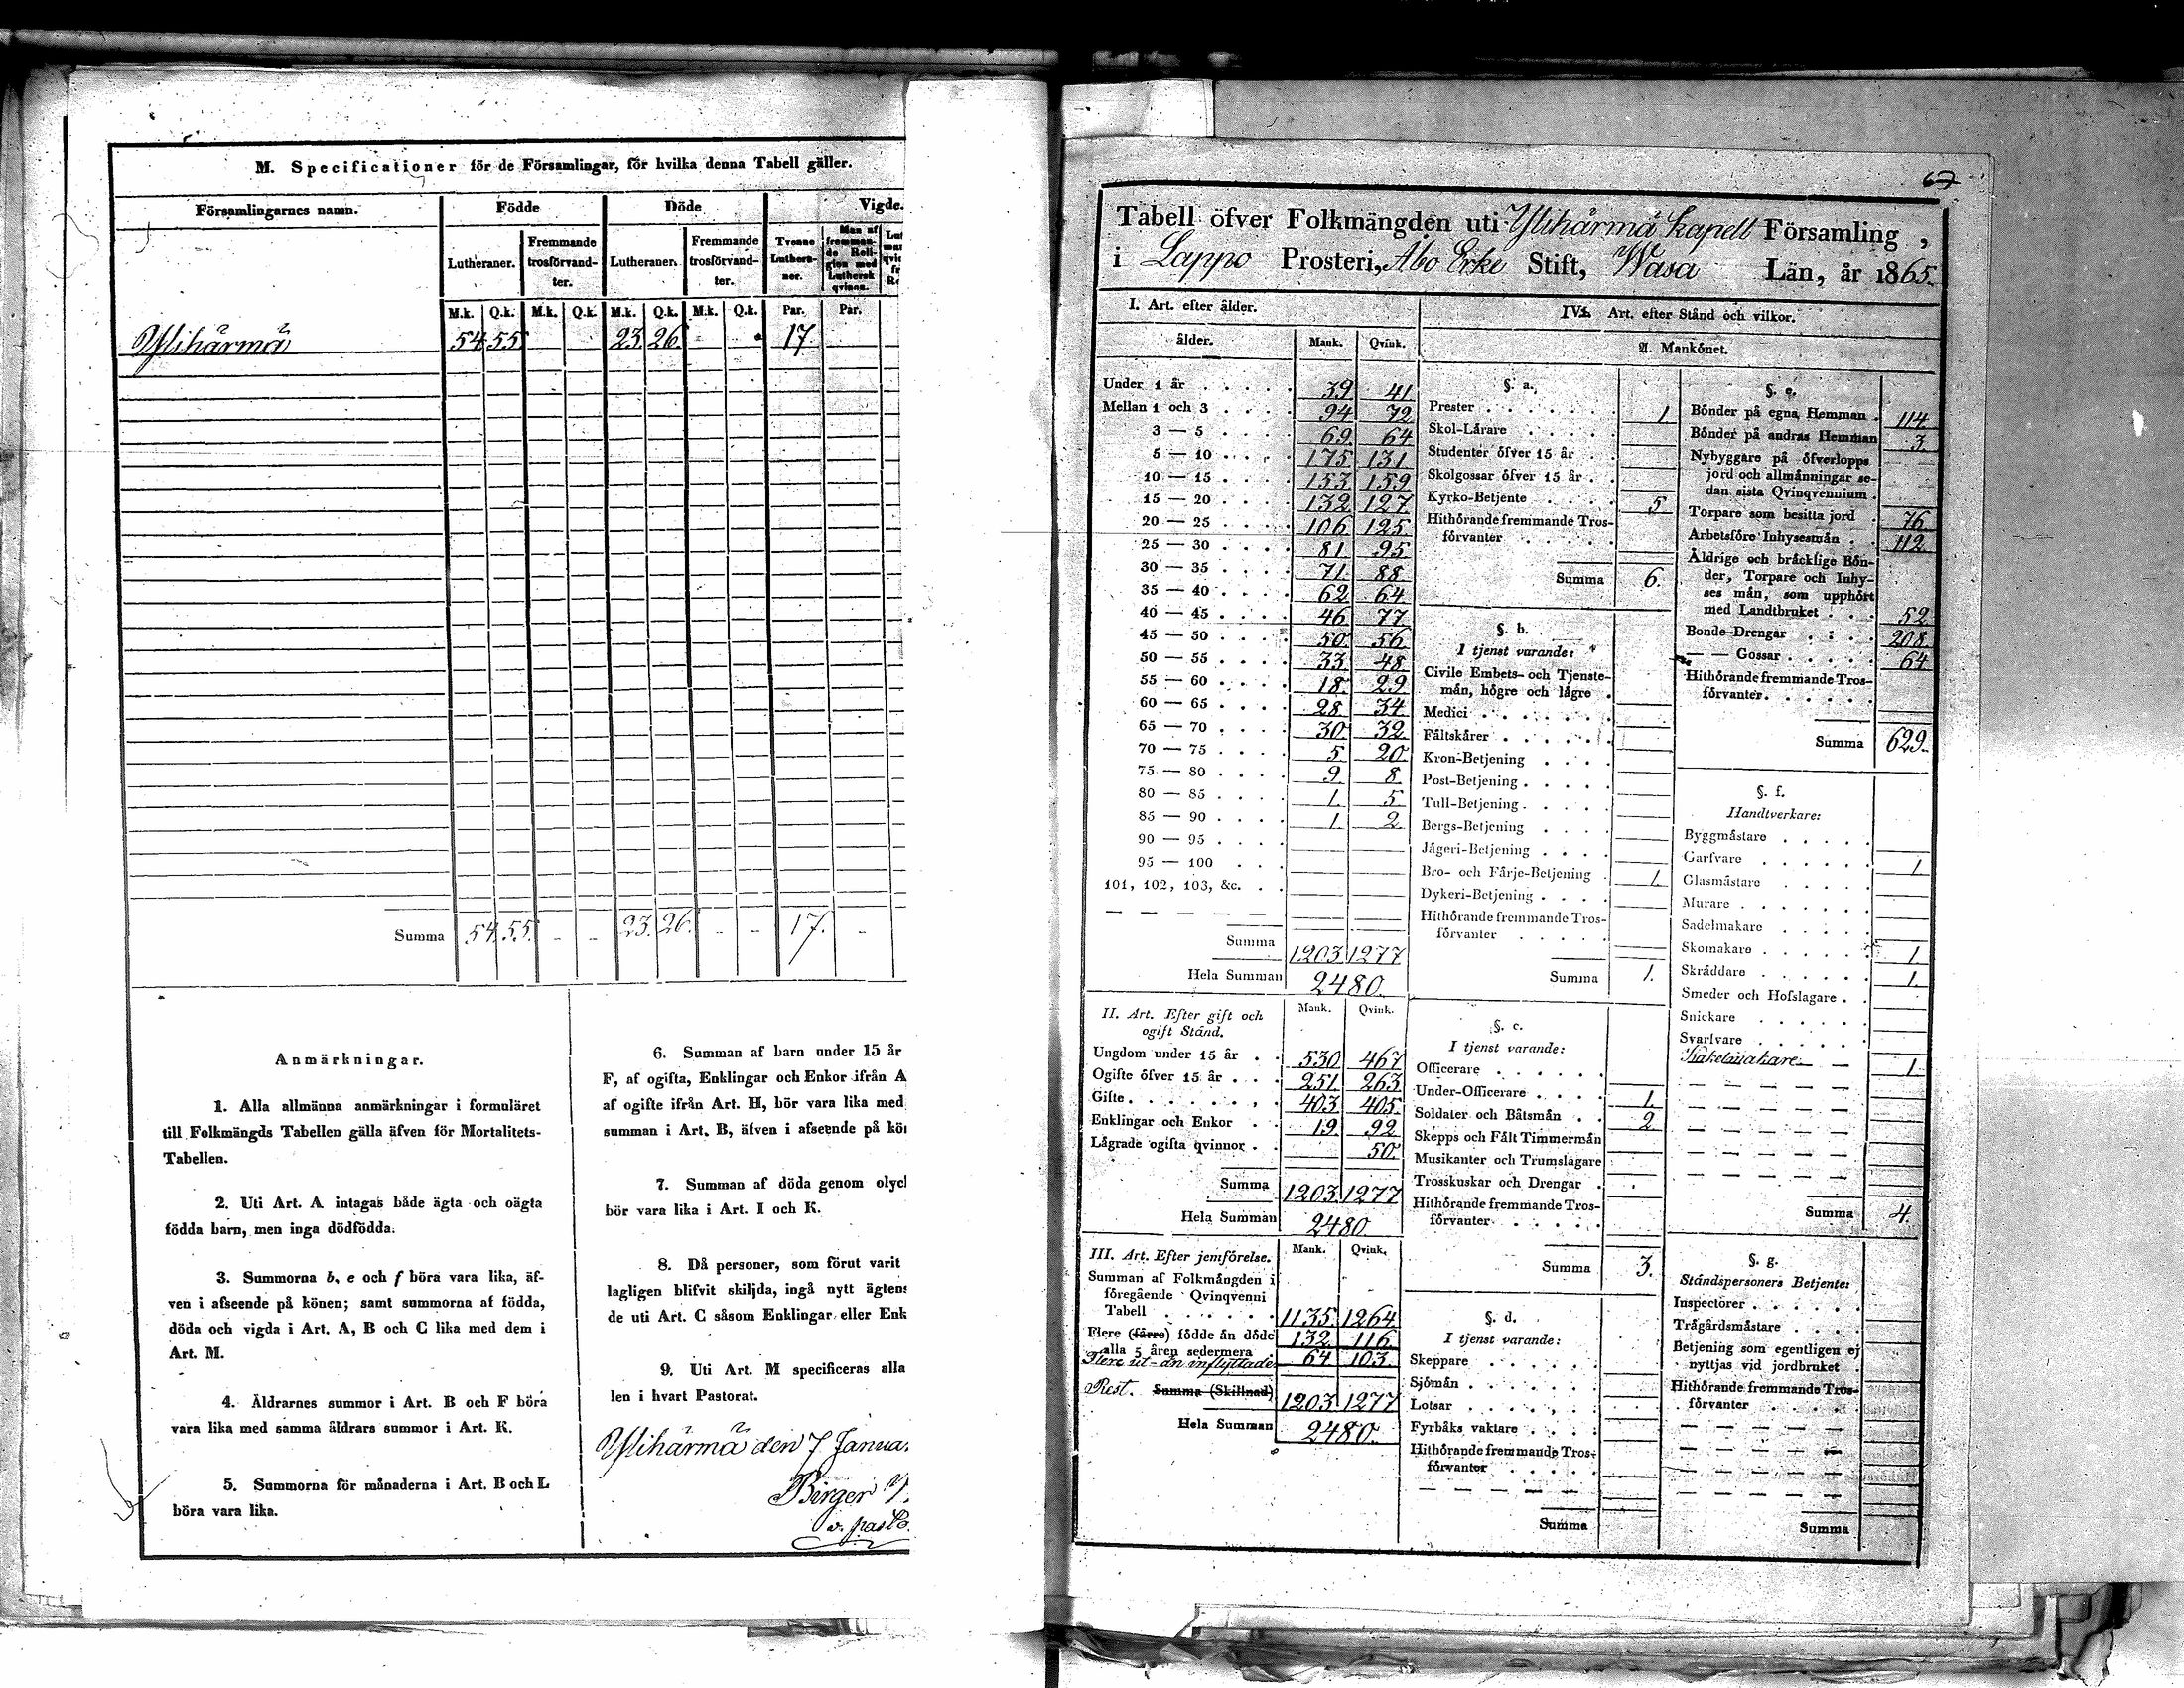 M. Specificationer för de Församlingar, för hvilka denna Tabell gäller.
Församlingarnes namn. Födde Döde Vigde.
Lutheraner. Fremmande trosförvandter. Lutheraner. Fremmande trosförvandter. Tvenne Lutheraner. Man af fremmande Religion med Luthersk qvinna.
M.k. Q.k. M.k. Q.k. M.k. Q.k. M.k. Q.k. Par. Par.
Ylihärmä 54 55 23 26 17
Summa 54. 55. - - 23. 26. - - 17. -
Anmärkningar.
1. Alla allmänna anmärkningar i formuläret
till Folkmängds Tabellen gälla äfven för Mortalitets-
Tabellen.
2. Uti Art. A intagas både ägta och oägta
födda barn, men inga dödfödda.
3. Summorna b, e och f böra vara lika, äf-
ven i afseende på könen; samt summorna af födda,
döda och vigda i Art. A, B och C lika med dem i
Art. M.
4. Äldrarnes summor i Art. B och F böra
vara lika med samma äldrars summor i Art. K.
5. Summorna för månaderna i Art. B och L
böra vara lika.
6. Summan af barn under 15 år
F, af ogifta, Enklingar och Enkor ifrån A
af ogifte ifrån Art. H, bör vara lika med
summan i Art. B, äfven i afseende på kön
7. Summan af döda genom olyc
bör vara lika i Art. I och K.
8. Då personer, som förut varit
lagligen blifvit skiljda, ingå nytt ägten
de uti Art. C såsom Enklingar eller Enk
9. Uti Art. M specificeras alla
len i hvart Pastorat.
Ylihärmä den 7 Janua
Birger
v. pasto
67
Tabell öfver Folkmängden uti Ylihärmä kapell Församling,
i Lappo Prosteri, Åbo Erke Stift, Wasa Län, år 1865.
I. Art. efter ålder.
ålder. Mank. Qvink.
Under 1 år 39 41
Mellan 1 och 3 94 72
3 — 5 69 64
5 — 10 175 131
10 — 15 153 159
15 — 20 132 127
20 — 25 106 125
25 — 30 81 95
30 — 35 71 88
35 — 40 62 64
40 — 45 46 77
45 — 50 50 56
50 — 55 33 48
55 — 60 18 29
60 — 65 28 34
65 — 70 30 32
70 — 75 5 20
75 — 80 9 8
80 — 85 1 5
85 — 90 1 2
90 — 95
95 — 100
101, 102, 103, &c.
Summa 1203 1277
Hela Summan 2480.
II. Art. Efter gift och
ogift Stånd. Mank. Qvink.
Ungdom under 15 år 530 467
Ogifte öfver 15 år 251 263
Gifte 403 405
Enklingar och Enkor 19 92
Lägrade ogifta qvinnor 50
Summa 1203 1277
Hela Summan 2480
III. Art. Efter jemförelse. Mank. Qvink.
Summan af Folkmängden i
föregående Qvinqvenni
Tabell 1135 1264
Flere (färre) födde än döde 132 116
alla 5 åren sedermera
Flere ut- än inflyttade 64 103
Rest. Summa (Skillnad) 1203 1277
Hela Summan 2480.
IV. Art. efter Stånd och vilkor.
A. Mankönet.
§. a.
Prester 1
Skol-Lärare
Studenter öfver 15 år
Skolgossar öfver 15 år
Kyrko-Betjente 5
Hithörande fremmande Tros-
förvanter
Summa 6.
§. b.
I tjenst varande:
Civile Embets- och Tjenste-
män, högre och lägre
Medici
Fältskärer
Kron-Betjening
Post-Betjening
Tull-Betjening
Bergs-Betjening
Jägeri-Betjening
Bro- och Färje-Betjening 1
Dykeri-Betjening
Hithörande fremmande Tros-
förvanter
Summa 1.
§. c.
I tjenst varande:
Officerare
Under-Officerare 1
Soldater och Båtsmän 2
Skepps och Fält Timmermän
Musikanter och Trumslagare
Trosskuskar och Drengar
Hithörande fremmande Tros-
förvanter
Summa 3.
§. d.
I tjenst varande:
Skeppare
Sjömän
Lotsar
Fyrbåks vaktare
Hithörande fremmande Tros-
förvanter
Summa
§. e.
Bönder på egna Hemman 114
Bönder på andras Hemman 3
Nybyggare på öfverlopps
jord och allmänningar se-
dan sista Qvinqvennium
Torpare som besitta jord 76
Arbetsföre Inhysesmän 112
Åldrige och bräcklige Bön-
der, Torpare och Inhy-
ses män, som upphört
med Landtbruket 52
Bonde-Drengar 208
— — Gossar 64
Hithörande fremmande Tros-
förvanter
Summa 629.
§. f.
Handtverkare:
Byggmästare
Garfvare 1
Glasmästare
Murare
Sadelmakare
Skomakare 1
Skräddare 1
Smeder och Hofslagare
Snickare
Svarfvare
Kakelmakare 1
Summa 4.
§. g.
Ståndspersoners Betjente:
Inspectorer
Trägårdsmästare
Betjening som egentligen ej
nyttjas vid jordbruket
Hithörande fremmande Tros-
förvanter
Summa